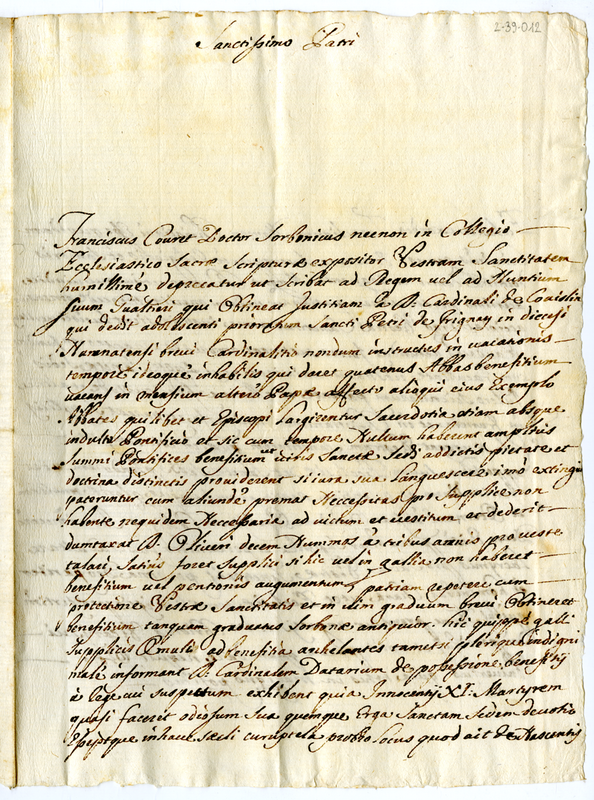 2-39-012
Sanctissimo Patri
Franciscus Couret Doctor Sorbonicus necnon in Collegio
Ecclesiastico Sacræ Scripturæ expositor Vestram Sanctitatem
humillimè deprecatur ut Scribat ad Regem vel ad Nuntium
suum Gualtieri qui Obtineat Justitiam à D. Cardinali de Couislin
qui dedit adolescenti prioratum Sancti Petri de grignay in diœcesi
brevi Cardinalitio nondum instructus in vacationis
tempore ideoque inhabilis qui docet quatenus Abbas benefitium
vacans in mensium altero Papæ affecto alioqui eius Exemplo
Abbates quilibet et Episcopi Largirentur Sacerdotia etiam absque
indulto Pontificio et sic cum tempore Nullum haberent amplius
Summi Pontifices benefitium ut illis Sanctæ Sedi addictis pietate et
doctrina distinctis providerent si iura sua Languescere imò extingui
paterentur cum aliundè premat Neccessitas pro Supplice non
habente nequidem Neccessaria ad victum et vestitum et dederit
dumtaxat D. Oliveri decem Nummos à tribus annis pro veste
talari, Satius foret Supplici si hic vel in gallia non haberet
benefitium vel pentionis augumentum patriam repetere cum
protectione Vestræ Sanctitatis et in vim graduum brevi Obtineret
benefitium tanquam graduatus Sorbonæ antiquior. hic quippe galli
Supplicis Æmuli ad benefitia anhelantes tametsi plerique indigni
malè informant D. Cardinalem Datarium de possessione benefitij
à Rege cui suspectum exhibent quia Innocentij XI. Martyrem
quasi faceret odiosum sua quemque Erga Sanctam Sedem devotio
Estque in hac sæcli curuptela probro locus quod ait de Nascentis